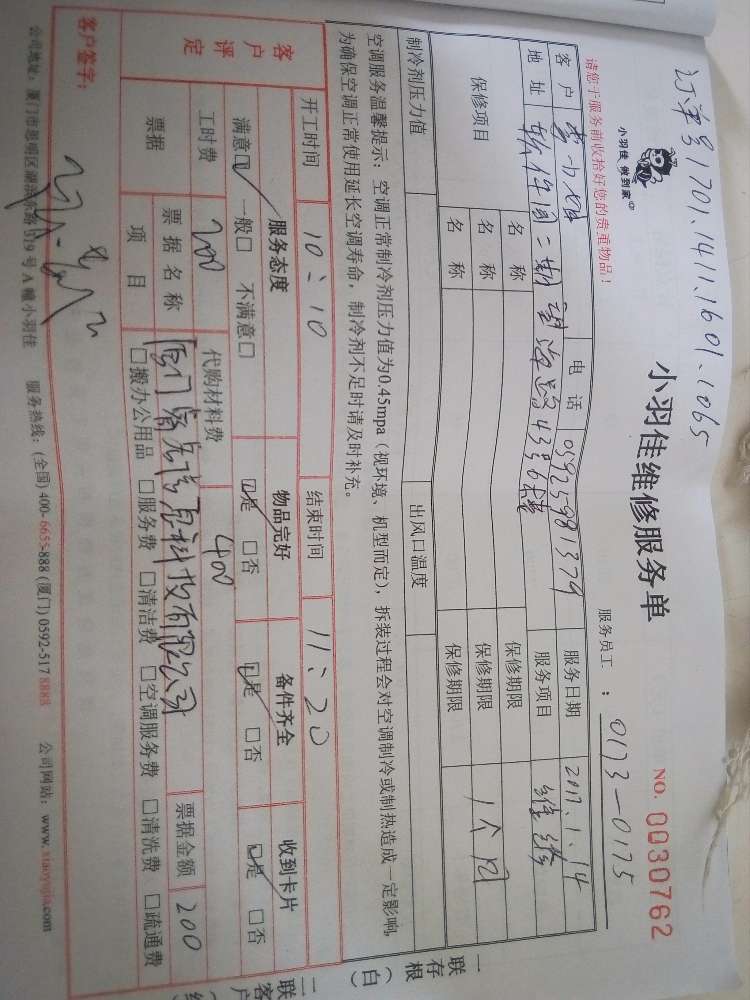 订单号1701.1411.1601.1065
小羽佳 做到家
小羽佳维修服务单
NO. 0030762
服务员工：0173-0175
请您于服务前收拾好您的贵重物品！
客户 电话 05925981379 服务日期 2017.1.14
地址 软件园二期望海路43号 服务项目 维修
保修项目 名称 保修期限
名称 保修期限 1个月
名称 保修期限
制冷剂压力值 出风口温度
空调服务温馨提示：空调正常制冷剂压力值为0.45mpa（视环境、机型而定），拆装过程会对空调制冷或制热造成一定影响，
为确保空调正常使用延长空调寿命，制冷剂不足时请及时补充。
客户评定
开工时间 10:10 结束时间 11:20
服务态度 物品完好 备件齐全 收到卡片
满意☑ 一般□ 不满意□ ☑是 □否 ☑是 □否 ☑是 □否
工时费 200 代购材料费 400
票据 票据名称 厦门 信息科技有限公司 票据金额 200
项目 □搬办公用品 □服务费 □清洁费 □空调服务费 □清洗费 □疏通费
客户签字：
公司地址：厦门市思明区湖滨南路319号A幢小羽佳 服务热线：(全国) 400-6655-888 (厦门) 0592-517 8888 公司网站：www.xiaoyujia.com
一联存根（白）
二联客户